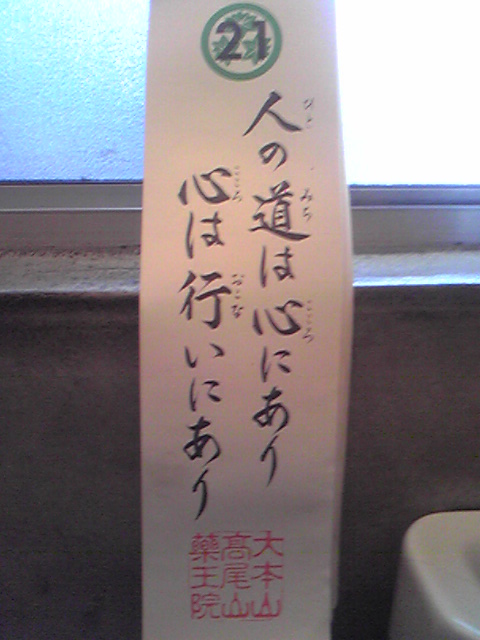 21
人の道は心にあり
心は行いにあり
大本山
高尾山
薬王院